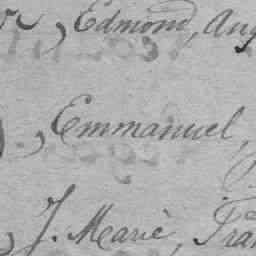 , Edmond, Aug
, Emmanuel,
, J. Marie, Fran